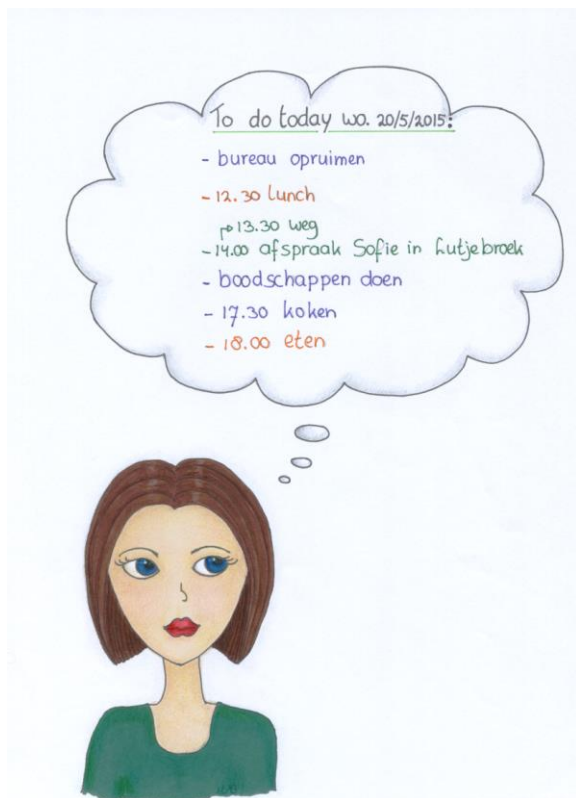 To do today wo. 20/5/2015:
- bureau opruimen
- 12.30 lunch
↱ 13.30 weg
- 14.00 afspraak Sofie in Lutjebroek
- boodschappen doen
- 17.30 koken
- 18.00 eten